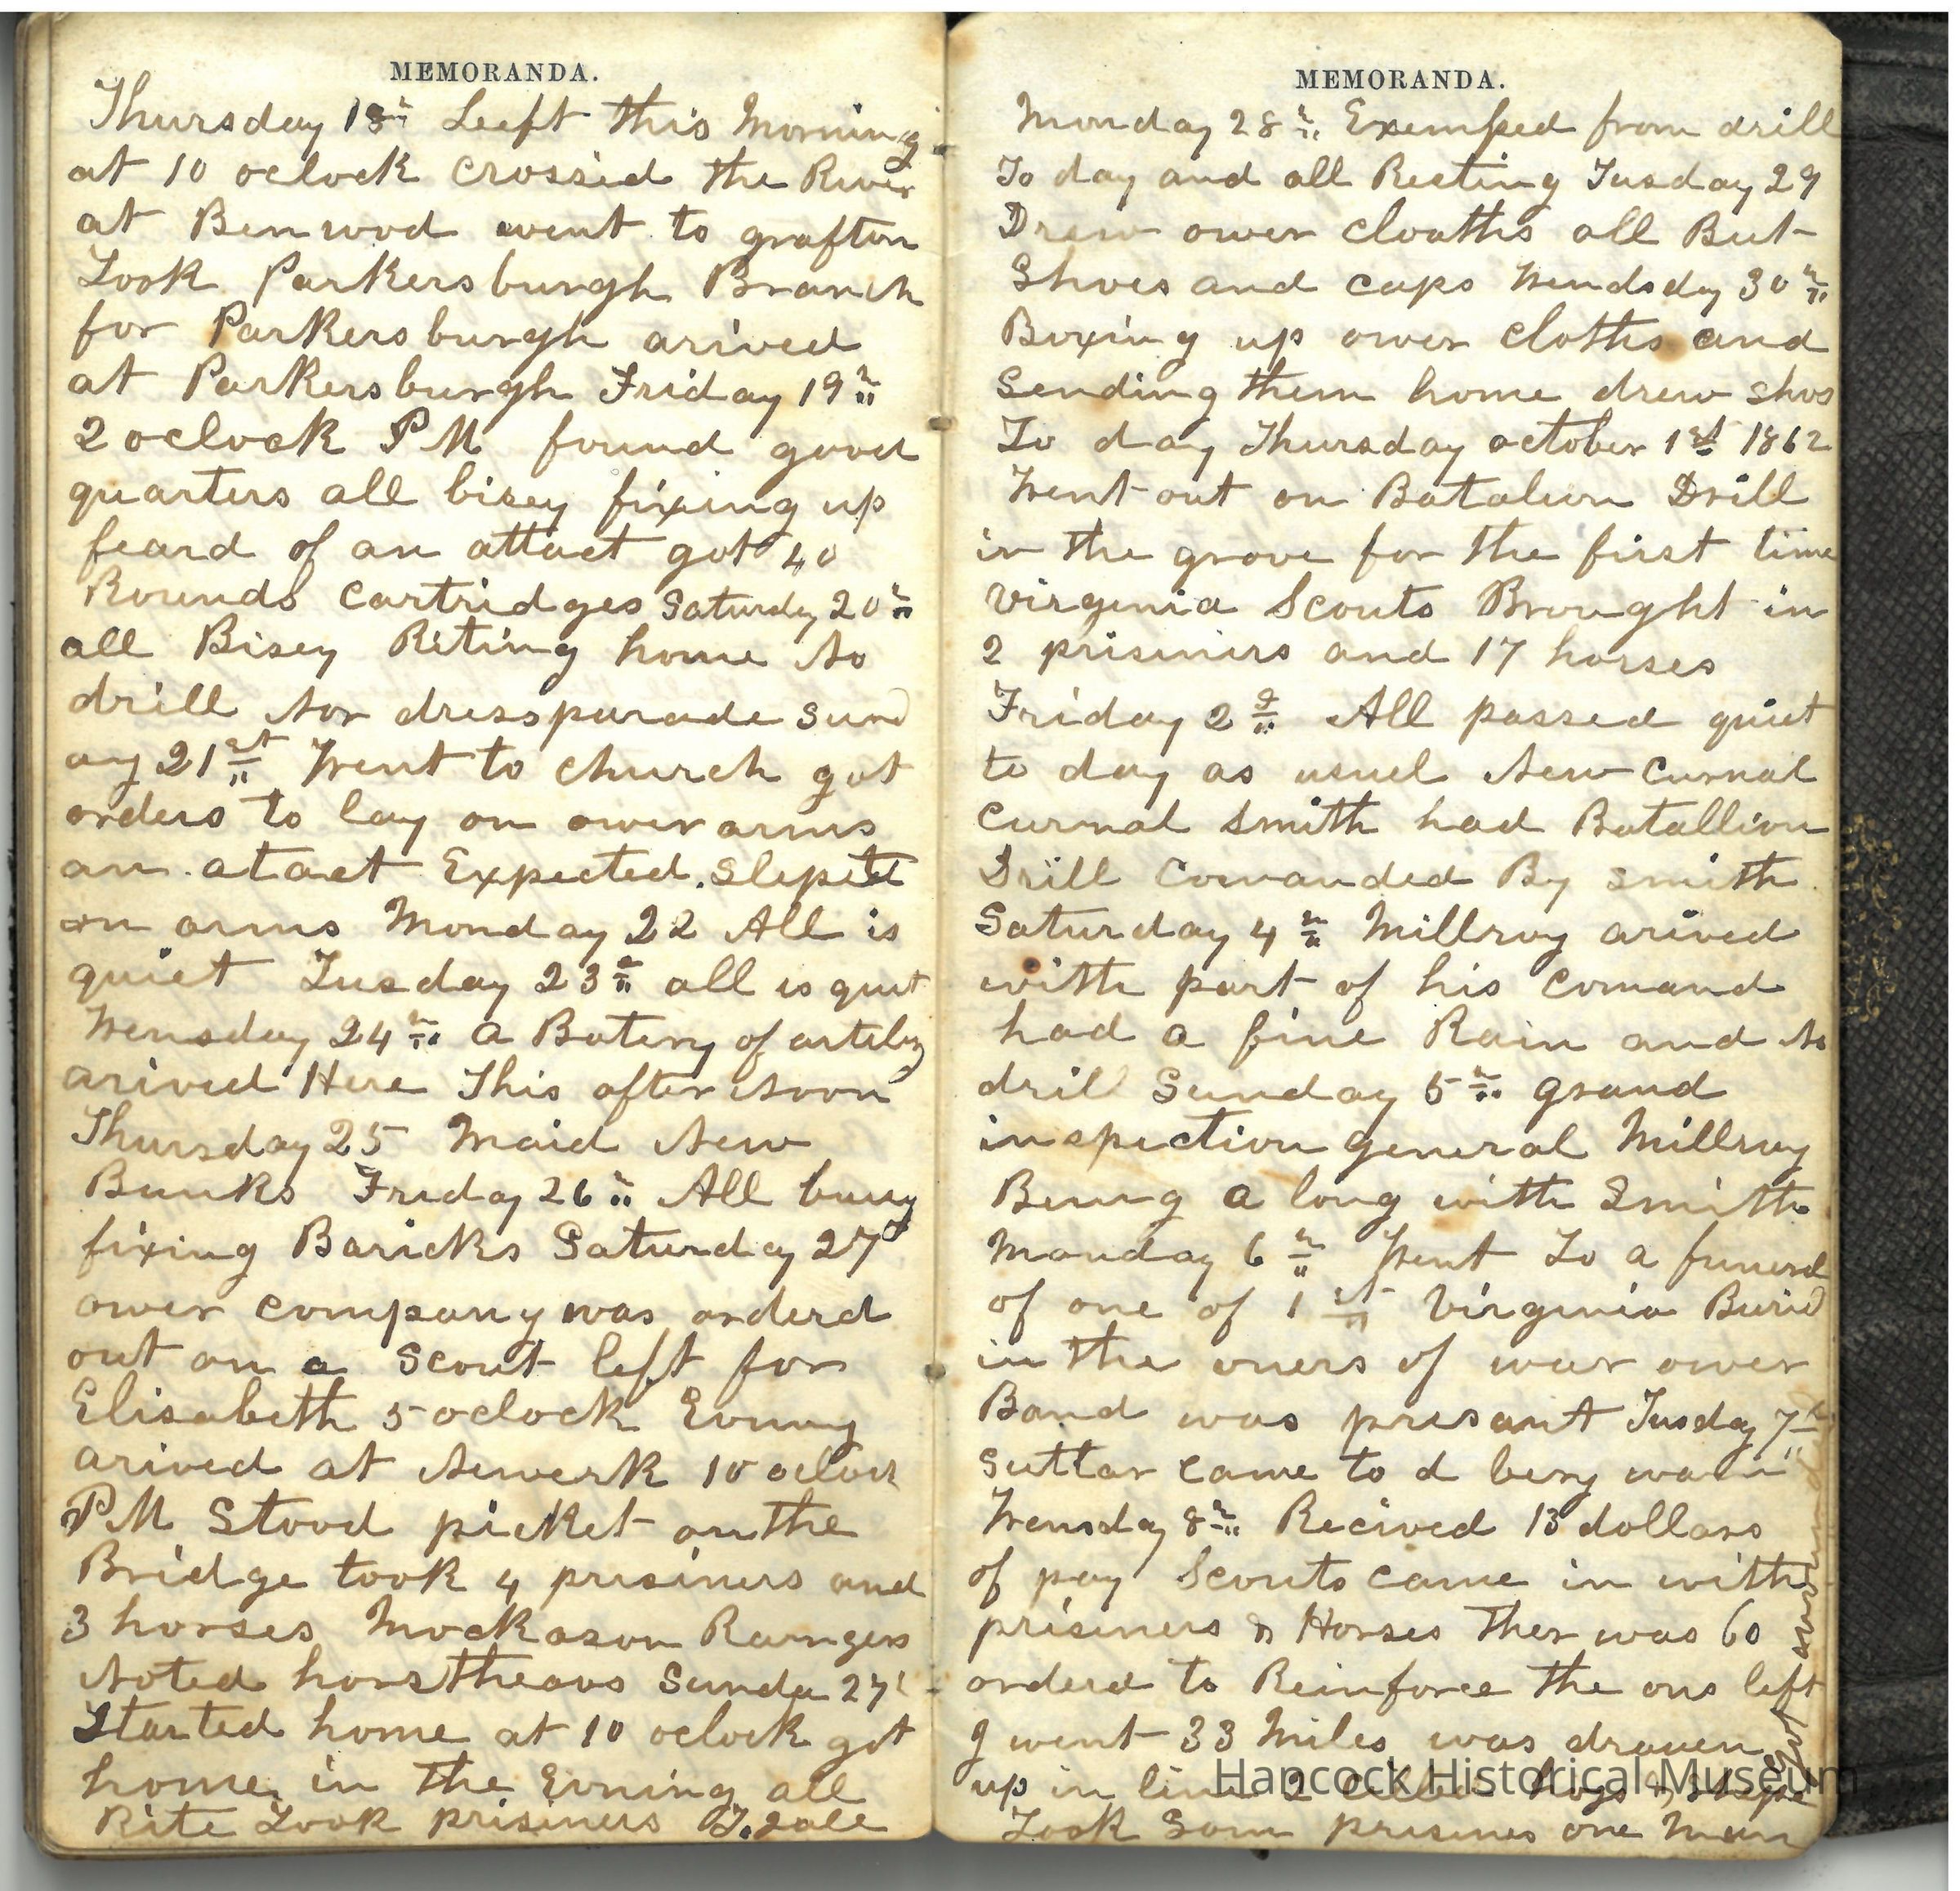 MEMORANDA.
Thursday 18th Leeft this Morning
at 10 oclock crossed the River
at Benwod went to grafton
Took Parkersburgh Branch
for Parkersburgh arived
at Parkersburgh Friday 19th
2 oclock PM found good
quarters all bisey fixing up
feard of an attact got 40
Rounds Cartridges Saturday 20th
all Bisey Riting home No
drill Nor dressparade Sund
ay 21st Went to church got
orders to lay on ower arms
an atact Expected. Slept
on arms Monday 22 All is
quiet Tusday 23d all is quit
Wensday 24th a Batery of artilry
arived Here This after Noon
Thursday 25 Maid New
Bunks Friday 26th All busy
fixing Baricks Saturday 27
ower company was orderd
out on a Scout left for
Elisabeth 5 oclock Evning
arived at Newerk 10 oclock
PM Stood picket on the
Bridge took 4 prisiners and
3 horses Mockason Raingers
Noted horstheavs Sunda 27
Started home at 10 oclock got
home in the Evning all
Rite Took prisiners To
MEMORANDA.
Monday 28th Exemped from drill
To day and all Resting Tusday 29
Drew ower cloaths all But
Shoes and caps Wendsday 30th
Boxing up ower cloths and
Sending them home drew shos
To day Thursday october 1st 1862
Went out on Batalion Drill
in the grove for the first time
Virginia Scouts Brought in
2 prisiners and 17 horses
Friday 2d All passed quiet
to day as usuel New Curnal
Curnal Smith had Batallion
Drill Comanded By Smith
Saturday 4th Millroy arived
with part of his Comand
had a fine Rain and No
dril Sunday 5th grand
inspection general Millroy
Being a long with Smith
Monday 6th Went To a funeral
of one of 1st Virginia Buried
in the oners of war ower
Band was presant Tusday 7th
Suttlar came to d
Wensday 8th Recived 13 dollars
of pay Scouts came in with
prisiners & Horses Ther was 60
orderd to Reinforce the ons left
I went 33 Miles was drawen
up in line 2 Hogs & Sheepe
Took Som prisines one Man
Hancock Historical Museum